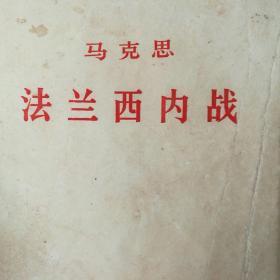 马克思
法兰西内战